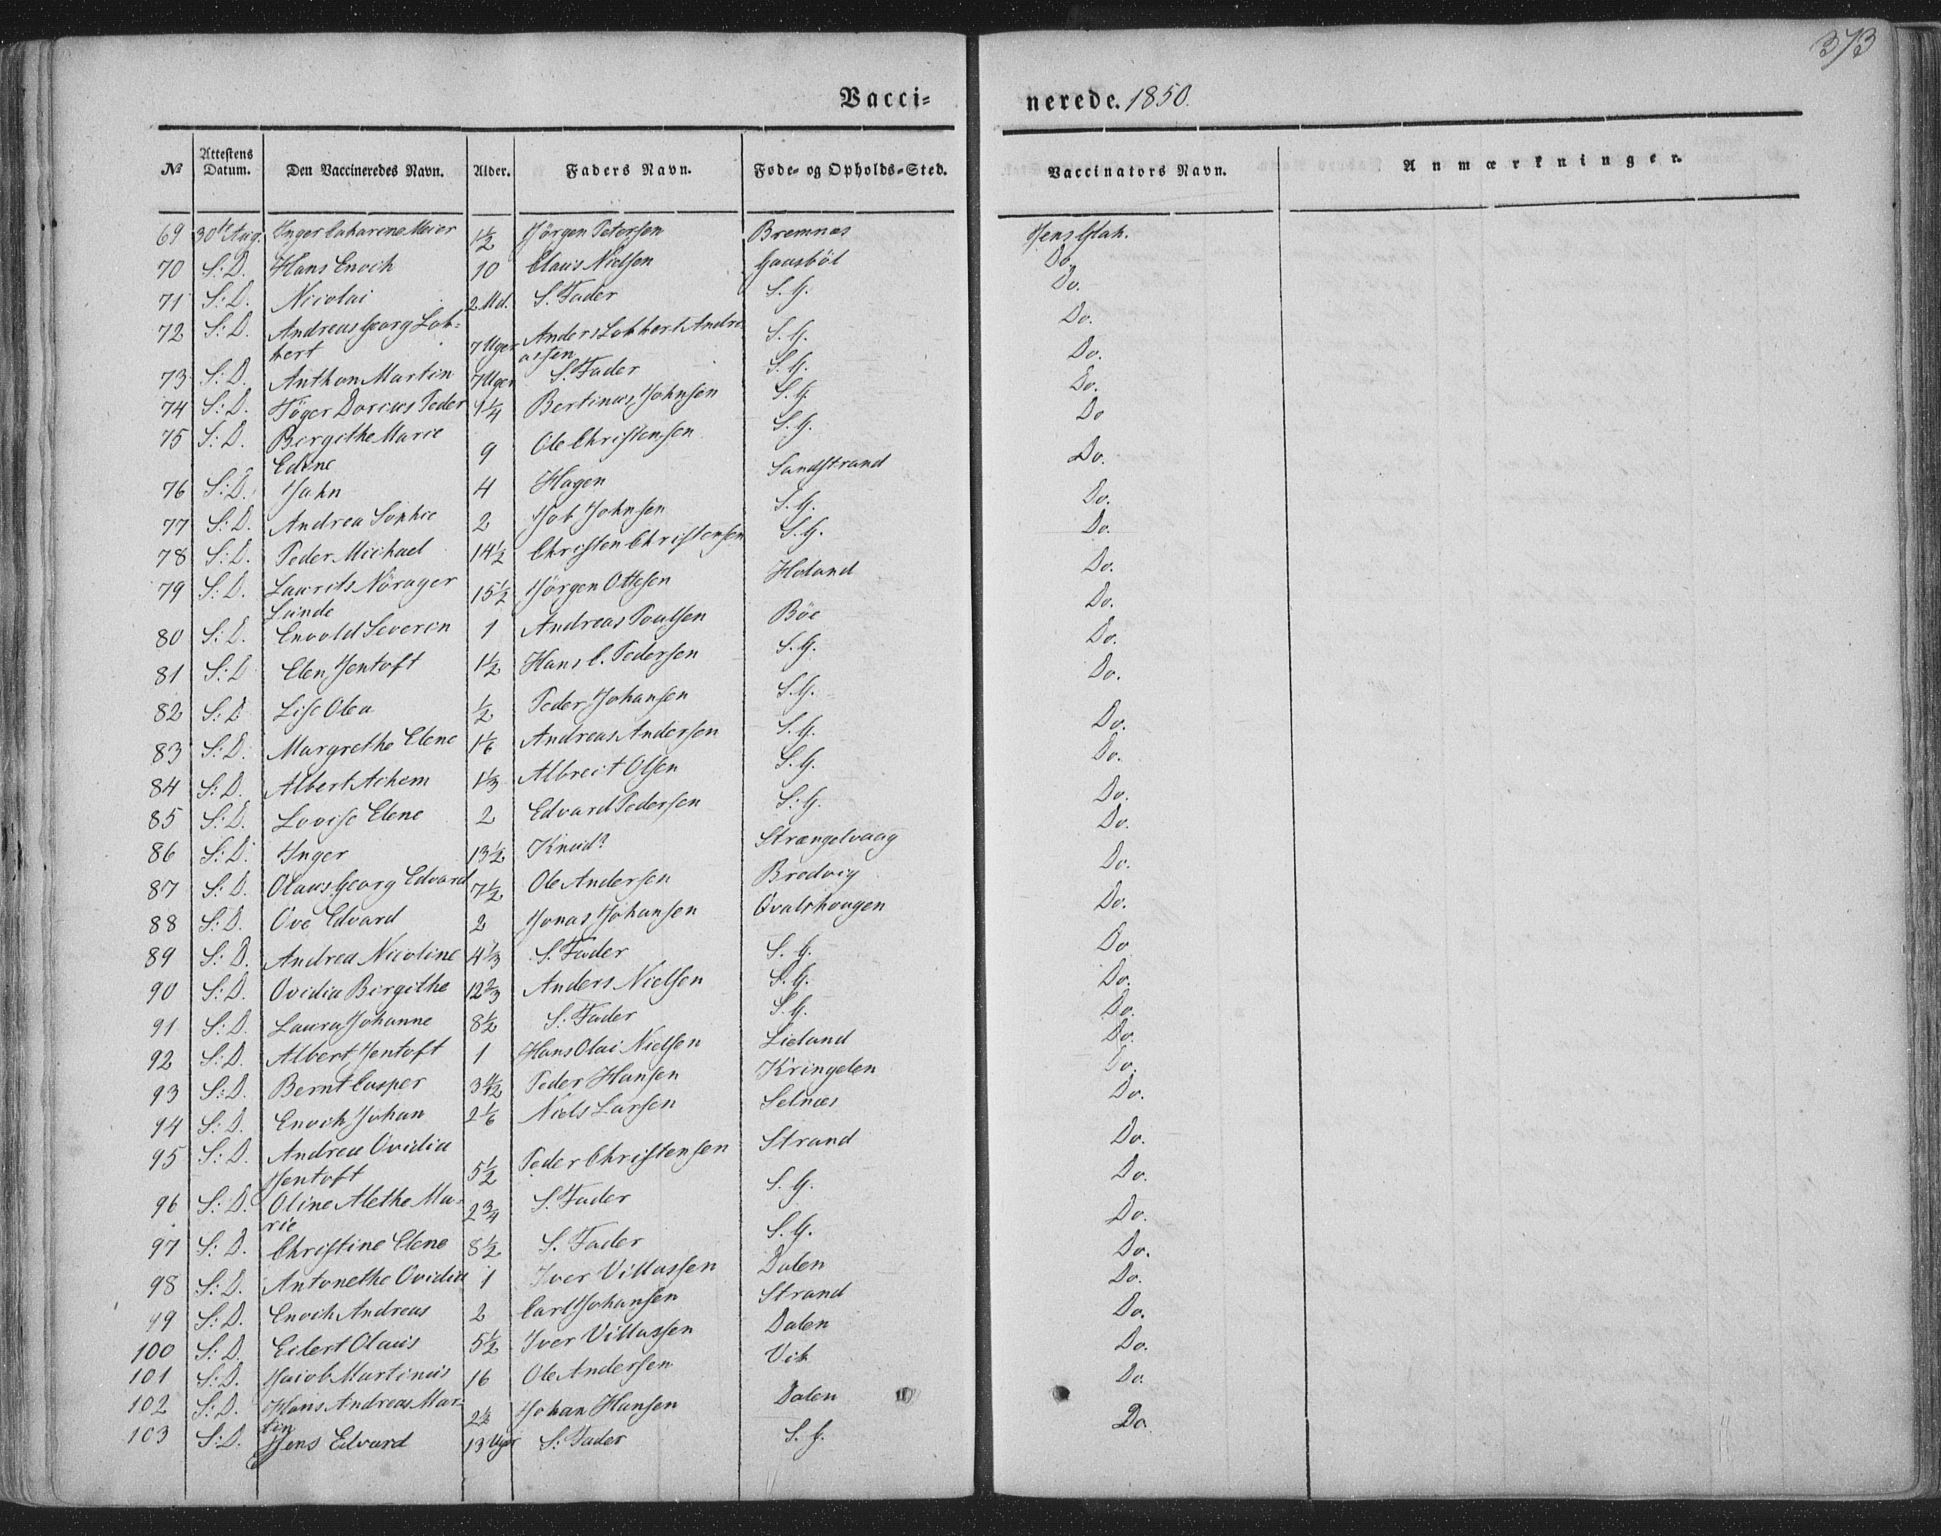 373
Vacci- nerede. 1850.
№ Attestens Datum. Den Vaccineredes Navn. Alder. Faders Navn. Føde- og Opholds-Sted. Vaccinators Navn. Anmærkninger.
69 30te Aug. Inger Catharine Meier 1½ Jörgen Petersen Bremnæs Jens Glah.
70 S: D. Hans Enoch 10 Claus Nielsen Gaasböl Do.
71 S: D. Nicolai 2 Md. S. Fader S. G. Do.
72 S: D. Andreas Georg Lok- 7 Uger Anders Lokkert Andre- S. G. Do.
kert assen
73 S: D. Anthon Martin 7 Uger S. Fader S. G. Do.
74 S: D. Töger Dorcas Peder 1¼ Bertinus Johnsen S. G. Do.
75 S: D. Birgithe Marie 9 Ole Christensen S. G. Do
Edine
76 S: D. John 4 Hagen Sandstrand Do.
77 S: D. Andrea Sophie 2 Job Johnsen S. G. Do.
78 S: D. Peder Michael 14½ Christen Christensen S. G. Do.
79 S: D. Laurits Nörager 15½ Jörgen Ottesen Holand Do.
Lunde
80 S: D. Envold Severin 1 Andreas Poulsen Böe Do.
81 S: D Elen Jentoft 1½ Hans C. Pedersen S. G. Do.
82 S: D Lise Olea ½ Peder Johansen S. G. Do.
83 S: D. Margrethe Elene 1⅙ Andreas Andersen S. G. Do.
84 S: D. Albert Achem 1⅓ Albreit Olsen S. G. Do.
85 S: D. Lovise Elene 2 Edvard Pedersen S. G. Do.
86 S: D. Inger 13½ Knud? Strængelvaag Do.
87 S: D. Olaus Georg Edvard 7½ Ole Andersen Bredvig Do.
88 S: D. Ove Edvard 2 Jonas Johansen Qvalshougen Do.
89 S: D. Andrea Nicoline 4⅓ S. Fader S. G. Do
90 S: D. Ovidia Birgithe 12⅔ Anders Nielsen S. G. Do.
91 S: D. Laura Johanne 8½ S. Fader S. G. Do.
92 S: D. Albert Jentoft 1 Hans Olai Nielsen Lieland Do.
93 S: D. Bernt Casper 3½ Peder Hansen Kringelen Do.
94 S: D. Enoch Johan 2⅙ Niels Larsen Selnæs Do.
95 S: D. Andrea Ovidia 5½ Peder Christensen Strand Do.
Jentoft
96 S: D. Oline Alethe Ma- 2¾ S. Fader S. G. Do.
rie
97 S: D. Christine Elene 8½ S. Fader S. G. Do.
98 S: D. Antonethe Ovidia 1 Iver Villassen Dalen Do.
99 S: D. Enoch Andreas 2 Carl Johansen Strand Do.
100 S: D. Eilert Olaus 5½ Iver Villassen Dalen Do.
101 S: D. Jacob Martinus 16 Ole Andersen Vik Do.
102 S: D. Hans Andreas Mar- 2½ Johan Hansen Dalen Do.
tin
103 S: D. Jens Edvard 13 Uger S. Fader S. G. Do.